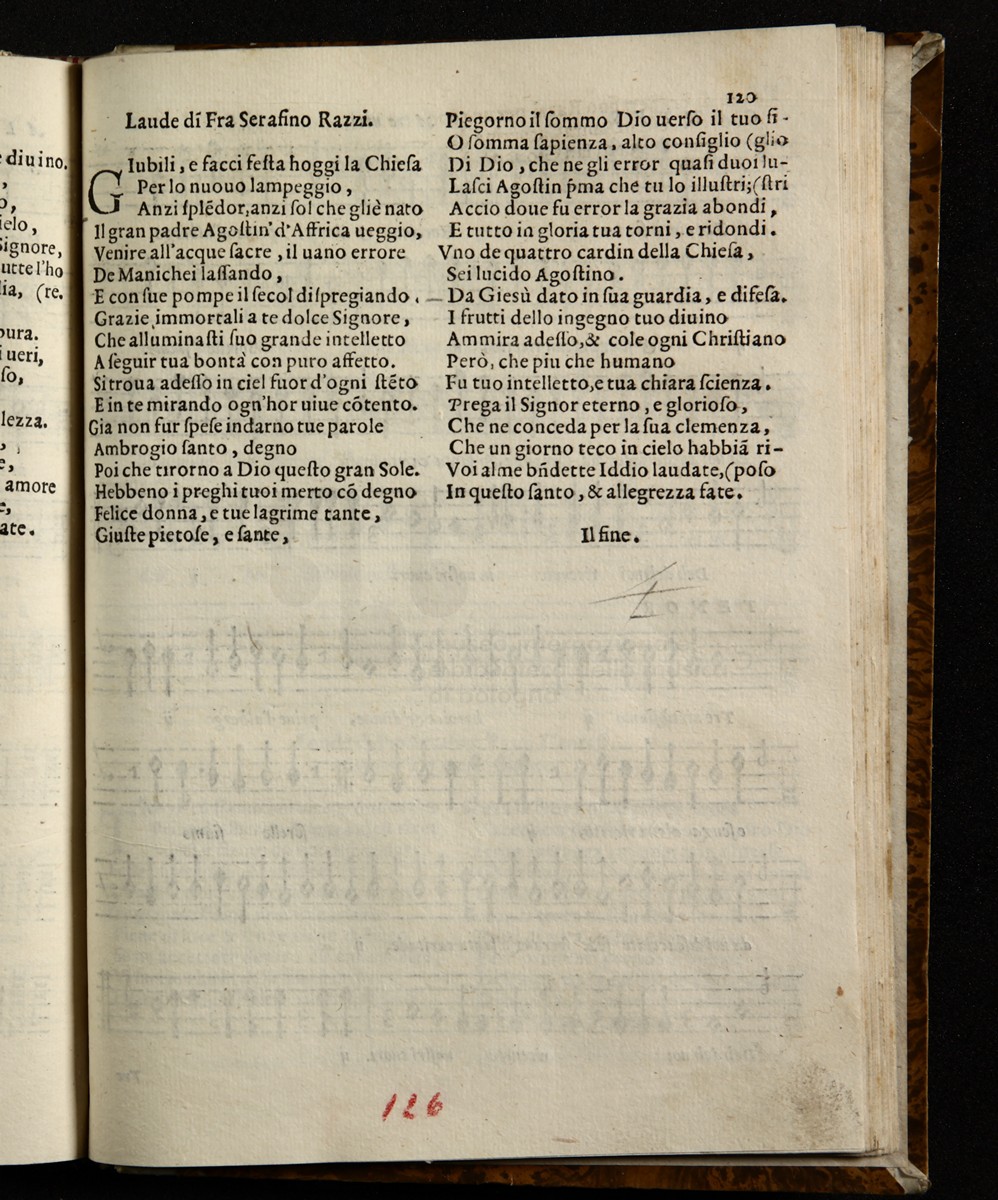 diuino.
,
o,
ielo,
Signore,
utte l'ho
lia, (re.
pura.
i ueri,
ſo,
lezza.
,
e,
amore
e,
ate.
120
Laude dí Fra Seraſino Razzi.
GIubili, e facci feſta hoggi la Chieſa
Per lo nuouo lampeggio,
Anzi ſplēdor, anzi ſol che gliè nato
Il gran padre Agoſtin' d'Affrica ueggio,
Venire all'acque ſacre, il uano errore
De Manichei laſſando,
E con ſue pompe il ſecol diſpregiando.
Grazie immortali a te dolce Signore,
Che alluminaſti ſuo grande intelletto
A ſeguir tua bontà con puro affetto.
Si troua adeſſo in ciel fuor d'ogni ſtēto
E in te mirando ogn'hor uiue cōtento.
Gia non fur ſpeſe indarno tue parole
Ambrogio ſanto, degno
Poi che tirorno a Dio queſto gran Sole.
Hebbeno i preghi tuoi merto cō degno
Felice donna, e tue lagrime tante,
Giuſte pietoſe, e ſante,
Piegorno il ſommo Dio uerſo il tuo fi-
O ſomma ſapienza, alto conſiglio (glio
Di Dio, che negli error quaſi duoi lu-
Laſci Agoſtin p̄ma che tu lo illuſtri; (ſtri
Accio doue fu error la grazia abondi,
E tutto in gloria tua torni, e ridondi.
Vno de quattro cardin della Chieſa,
Sei lucido Agoſtino.
Da Giesù dato in ſua guardia, e difeſa.
I frutti dello ingegno tuo diuino
Ammira adeſſo, & cole ogni Chriſtiano
Però, che piu che humano
Fu tuo intelletto, e tua chiara ſcienza.
Prega il Signor eterno, e glorioſo,
Che ne conceda per la ſua clemenza,
Che un giorno teco in cielo habbiā ri-
Voi alme bn̄dette Iddio laudate, (poſo
In queſto ſanto, & allegrezza fate.
Il fine.
126